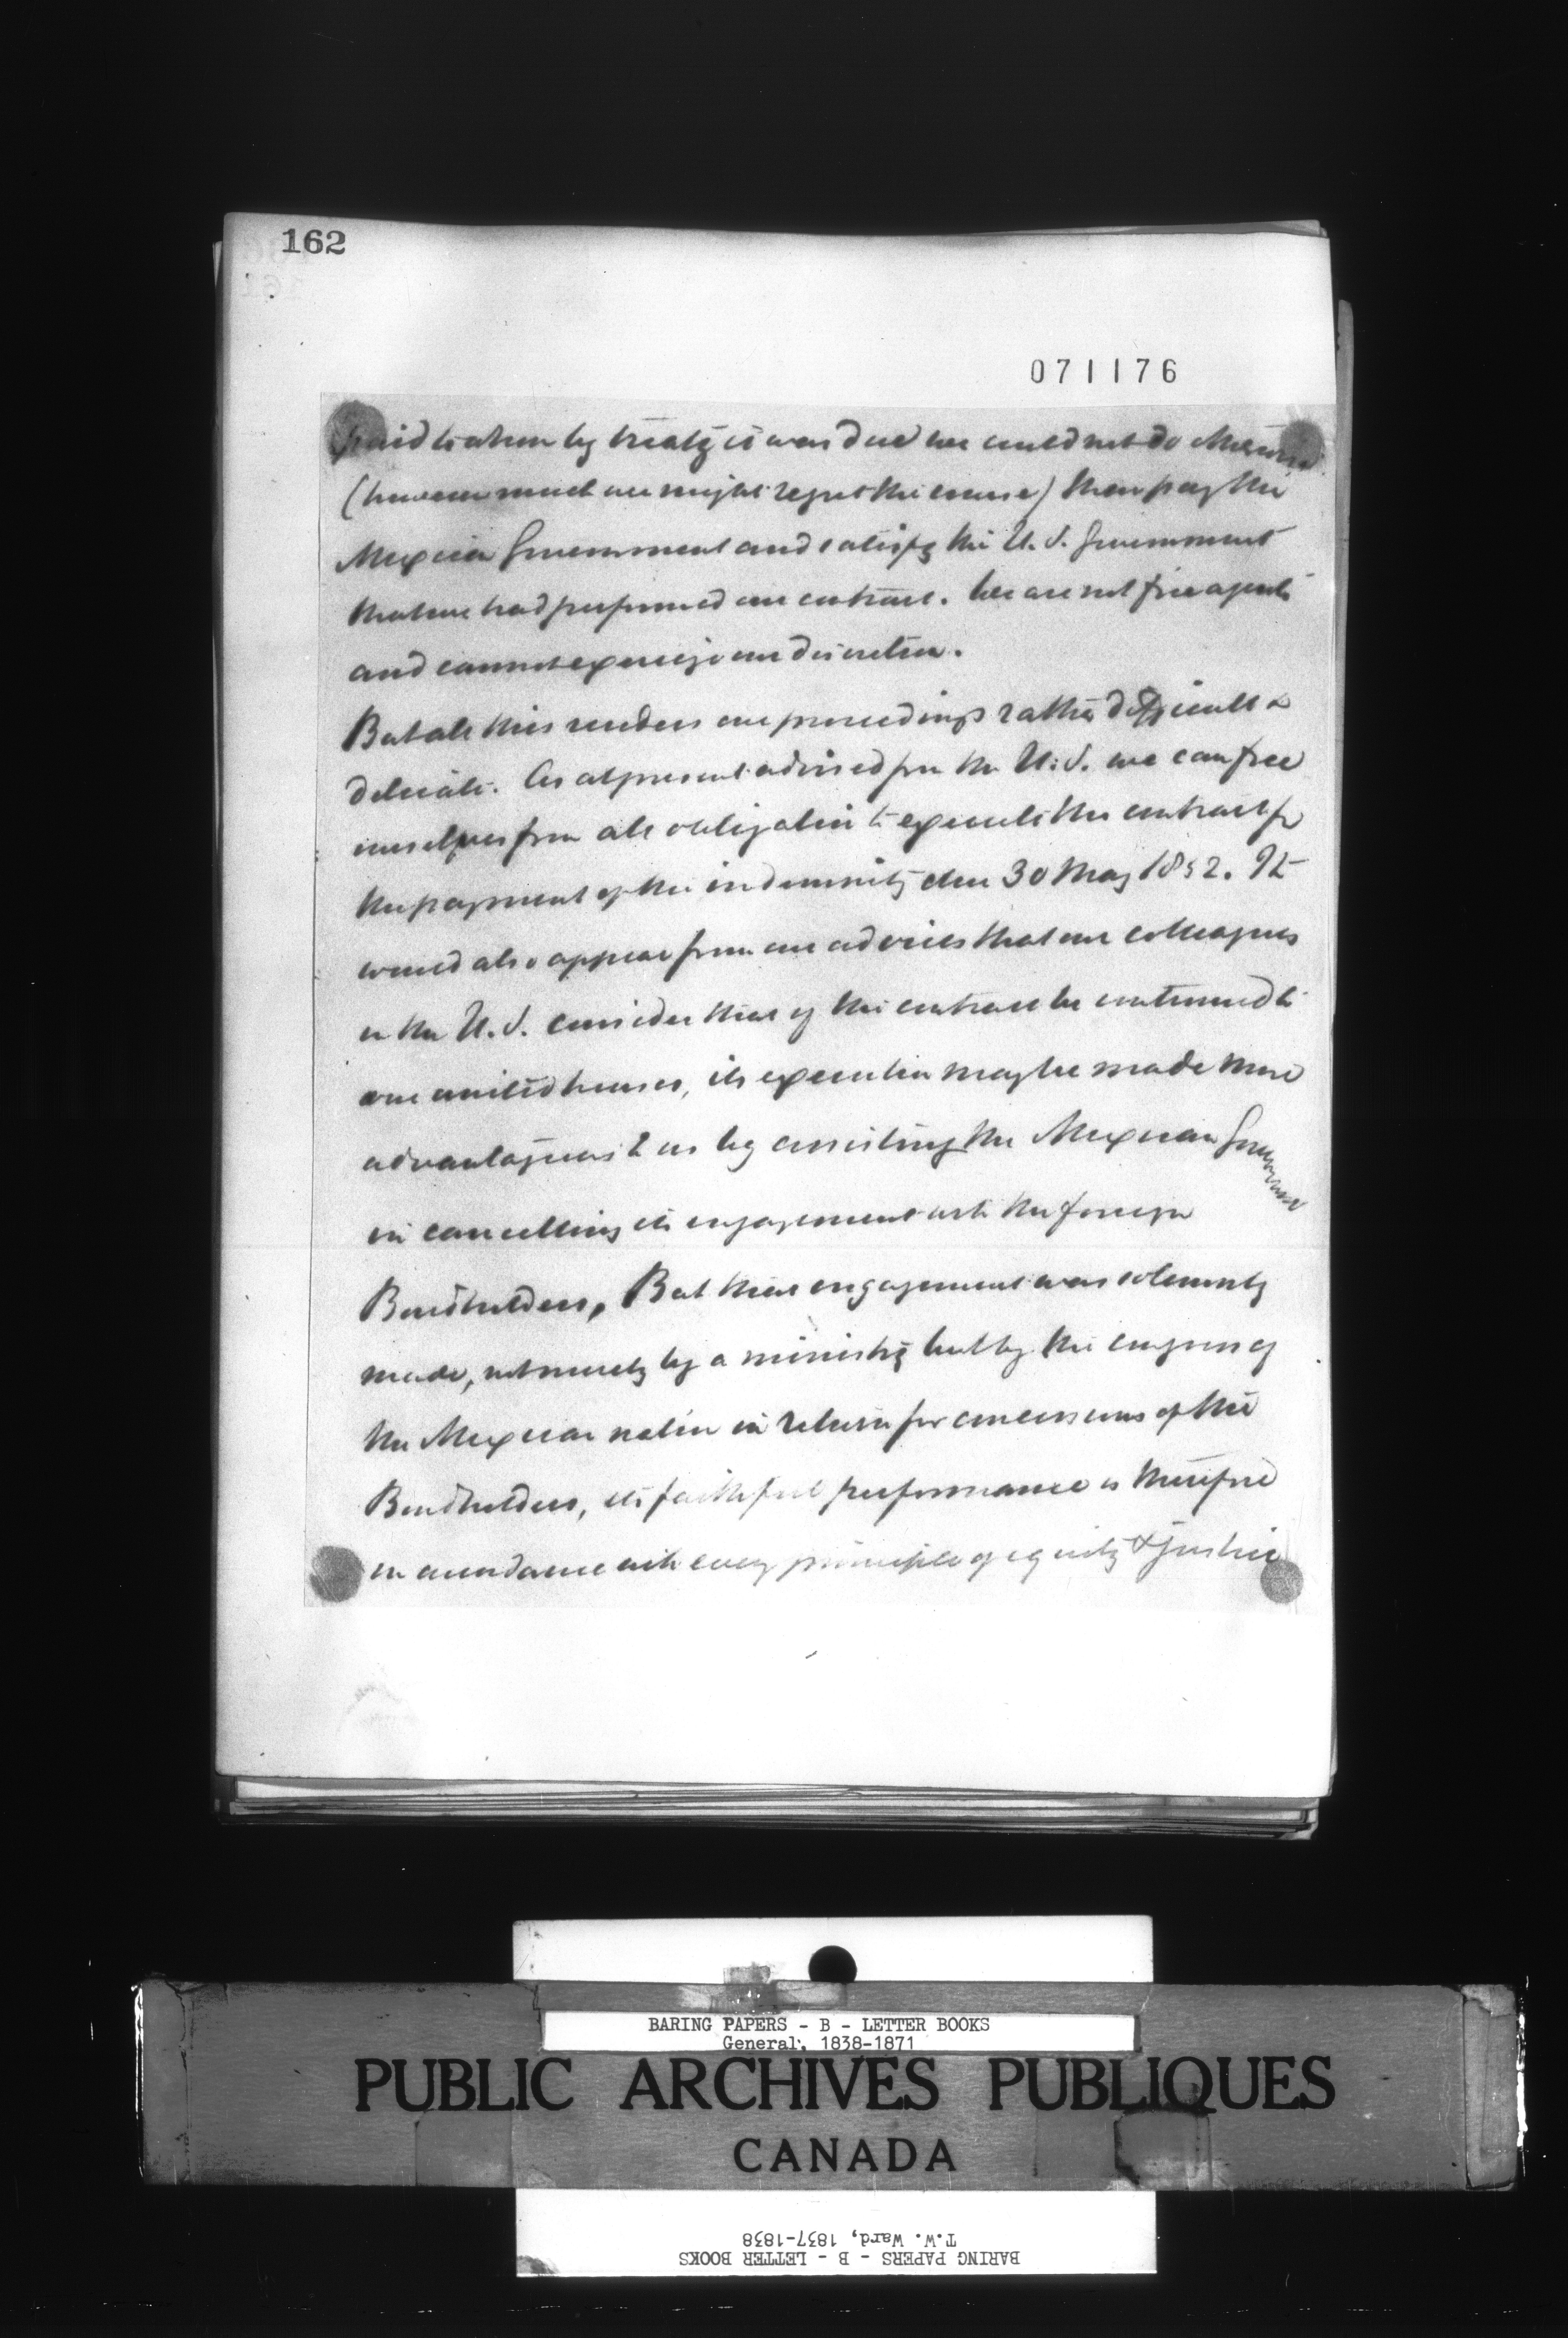 162
071176
paid to whom by treaty it was due we could not do otherwise
(however much we might regret the course) than pay the
Mexican Government and satisfy the U.S. Government
that we had performed our contract. We are not free agents
and cannot exercise our discretion.
But all this renders our proceedings rather difficult &
delicate. As at present advised from the U.S. we can free
ourselves from all obligation to execute the contract for
the payment of the indemnity due 30 May 1852. It
would also appear from our advices that our colleagues
in the U.S. consider that if the contract be continued to
our united houses, its execution may be made more
advantageous to us by assisting the Mexican Government
in cancelling its engagement with the foreign
Bondholders, But that engagement was solemnly
made, not merely by a ministry but by the congress of
the Mexican nation in return for concessions of the
Bondholders, its faithful performance is therefore
in accordance with every principle of equity & justice
BARING PAPERS - B - LETTER BOOKS
General, 1838-1871
PUBLIC ARCHIVES PUBLIQUES
CANADA
BARING PAPERS - B - LETTER BOOKS
T.W. Ward, 1837-1838